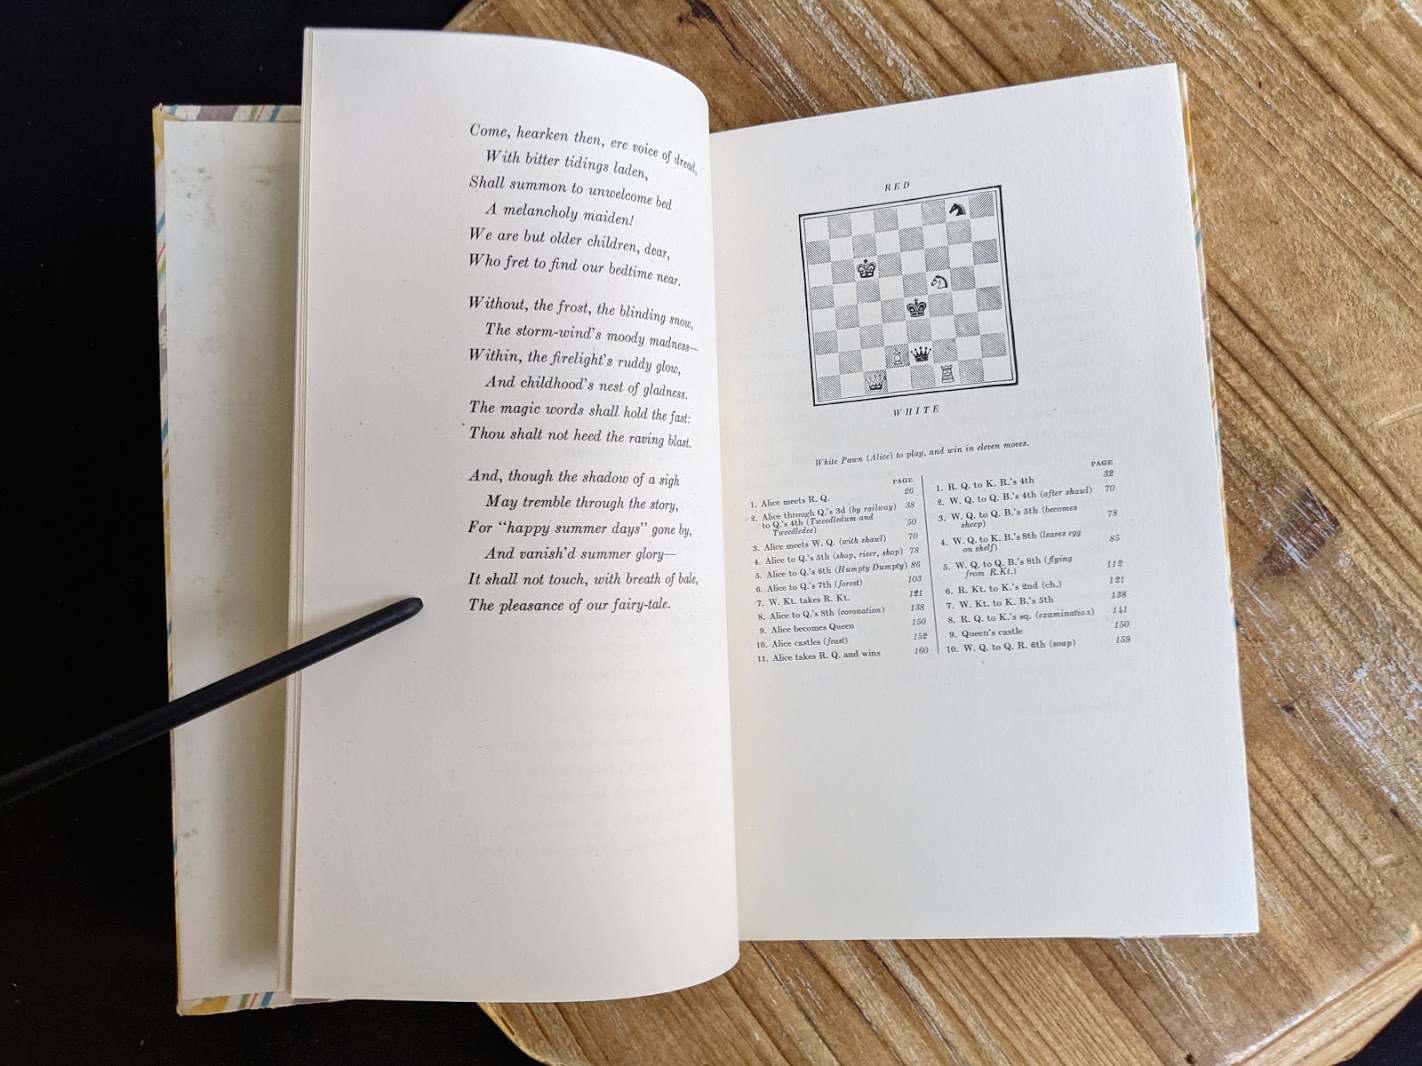 Come, hearken then, ere voice of dread,
With bitter tidings laden,
Shall summon to unwelcome bed
A melancholy maiden!
We are but older children, dear,
Who fret to find our bedtime near.
Without, the frost, the blinding snow,
The storm-wind's moody madness—
Within, the firelight's ruddy glow,
And childhood's nest of gladness.
The magic words shall hold the fast:
Thou shalt not heed the raving blast.
And, though the shadow of a sigh
May tremble through the story,
For "happy summer days" gone by,
And vanish'd summer glory—
It shall not touch, with breath of bale,
The pleasance of our fairy-tale.
RED
WHITE
White Pawn (Alice) to play, and win in eleven moves.
PAGE
1. Alice meets R. Q. 26
2. Alice through Q.'s 3d (by railway) 38
to Q.'s 4th (Tweedledum and
Tweedledee) 50
3. Alice meets W. Q. (with shawl) 70
4. Alice to Q.'s 5th (shop, river, shop) 78
5. Alice to Q.'s 6th (Humpty Dumpty) 86
6. Alice to Q.'s 7th (forest) 103
7. W. Kt. takes R. Kt. 121
8. Alice to Q.'s 8th (coronation) 138
9. Alice becomes Queen 150
10. Alice castles (feast) 152
11. Alice takes R. Q. and wins 160
PAGE
1. R. Q. to K. R.'s 4th 32
2. W. Q. to Q. B.'s 4th (after shawl) 70
3. W. Q. to Q. B.'s 5th (becomes
sheep) 78
4. W. Q. to K. B.'s 8th (leaves egg
on shelf) 85
5. W. Q. to Q. B.'s 8th (flying
from R.Kt.) 112
6. R. Kt. to K.'s 2nd (ch.) 121
7. W. Kt. to K. B.'s 5th 138
8. R. Q. to K.'s sq. (examination) 141
9. Queen's castle 150
10. W. Q. to Q. R. 6th (soup) 159